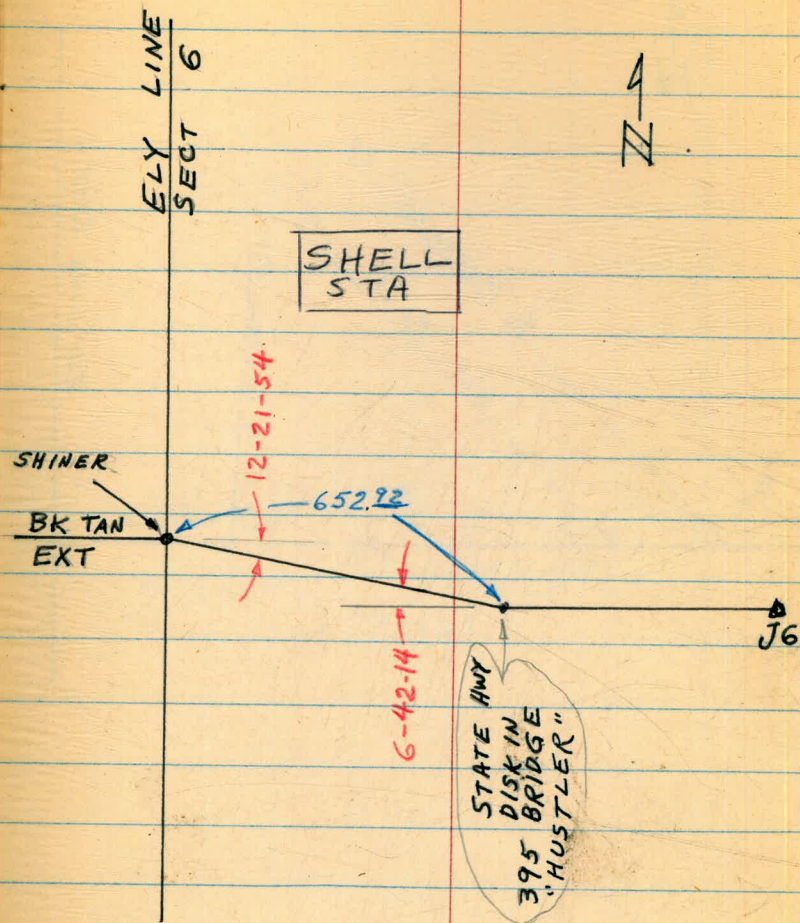 ELY LINE
SECT 6
N
SHELL
STA
12-21-54
SHINER
652.92
BK TAN
EXT
J6
6-42-14
STATE HWY
DISK IN
395 BRIDGE
"HUSTLER"